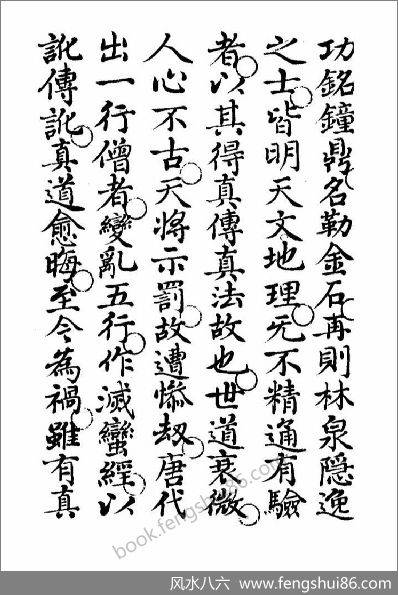 功銘鐘鼎名勒金石再則林泉隱逸
之士皆明天文地理无不精通有驗
者以其得真傳真法故也世道衰微
人心不古天將示罰故遭慘劫唐代
出一行僧者變亂五行作滅蠻經以
訛傳訛真道愈晦至今為禍雖有真
book.fengshui86.com
风水八六 www.fengshui86.com